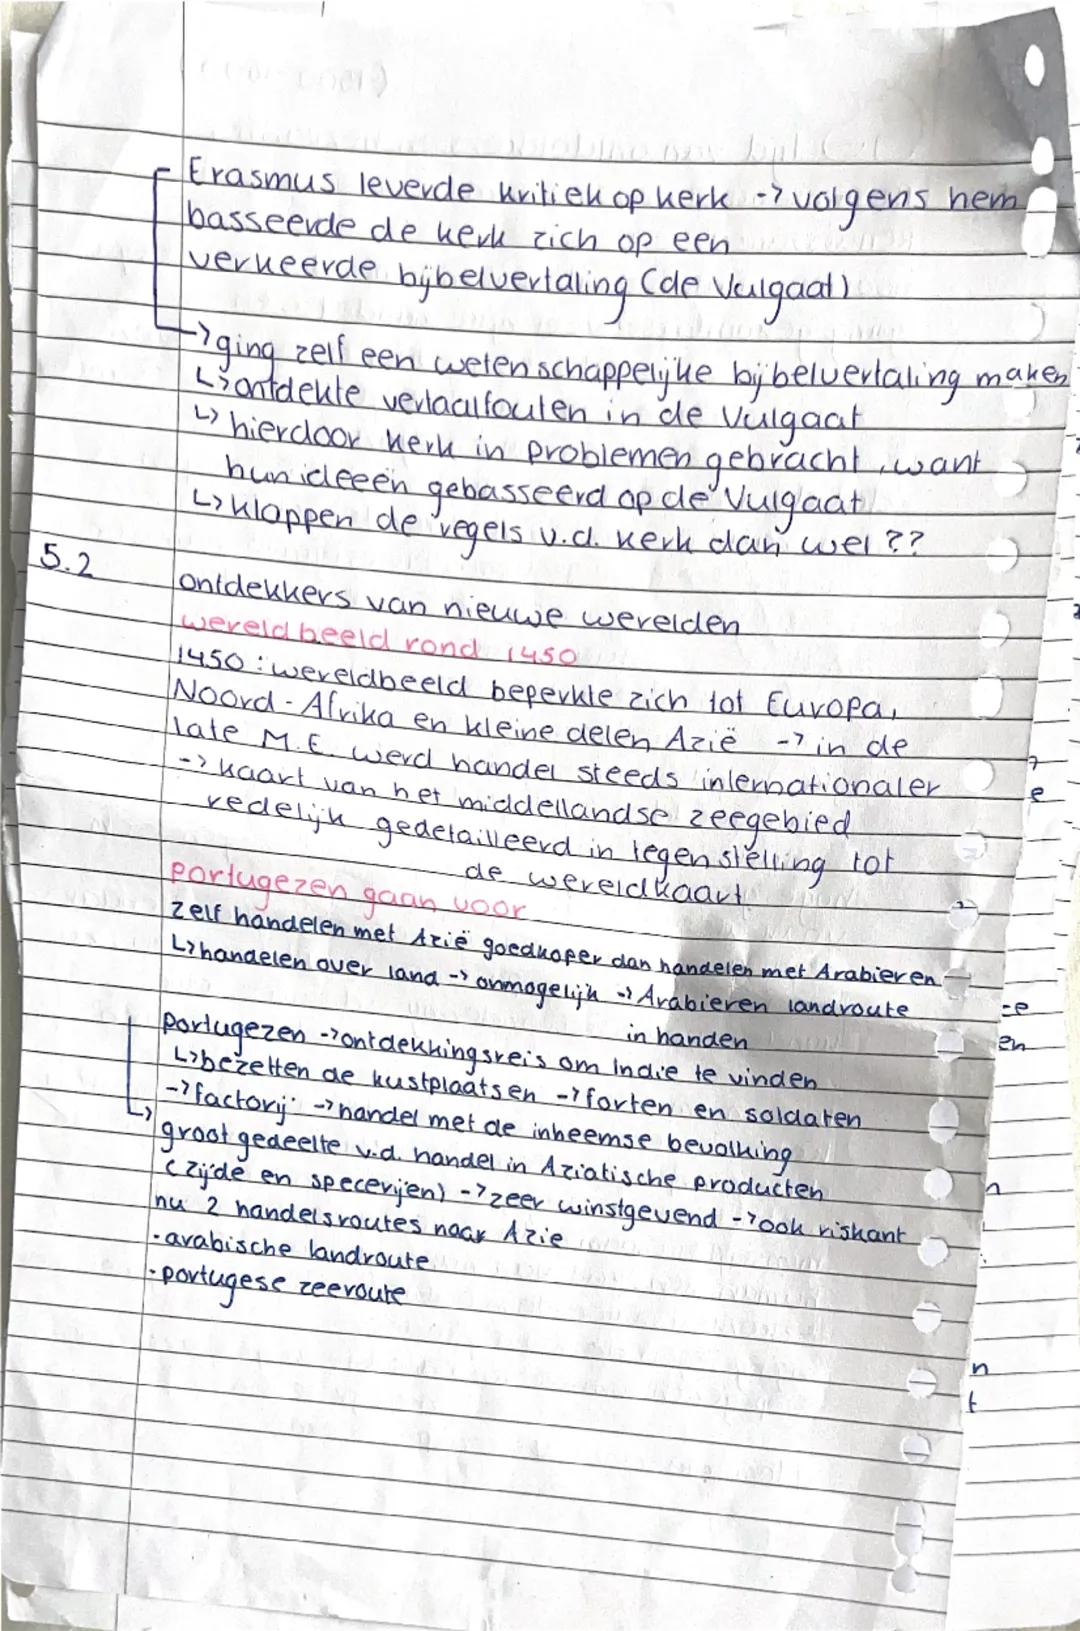 Erasmus leverde kritiek op kerk -> volgens hem
basseerde de kerk zich op een
verkeerde bijbelvertaling (de Vulgaat)
-> ging zelf een wetenschappelijke bijbelvertaling maken
↳ ontdekte vertaalfouten in de Vulgaat
↳ hierdoor kerk in problemen gebracht, want
hun ideeën gebasseerd op de Vulgaat
↳ kloppen de regels v.d. kerk dan wel ??
5.2 ontdekkers van nieuwe werelden
wereldbeeld rond 1450
1450: wereldbeeld beperkte zich tot Europa,
Noord-Afrika en kleine delen Azië -> in de
late M.E. werd handel steeds internationaler
-> kaart van het middellandse zeegebied
redelijk gedetailleerd in tegenstelling tot
de wereldkaart
Portugezen gaan voor
zelf handelen met Azië goedkoper dan handelen met Arabieren
↳ handelen over land -> onmogelijk -> Arabieren landroute
in handen
Portugezen -> ontdekkingsreis om Indie te vinden
↳ bezetten de kustplaatsen -> forten en soldaten
-> factorij -> handel met de inheemse bevolking
↳ groot gedeelte v.d. handel in Aziatische producten
(zijde en specerijen) -> zeer winstgevend -> ook riskant
nu 2 handelsroutes naar Azie
· arabische landroute
· portugese zeeroute